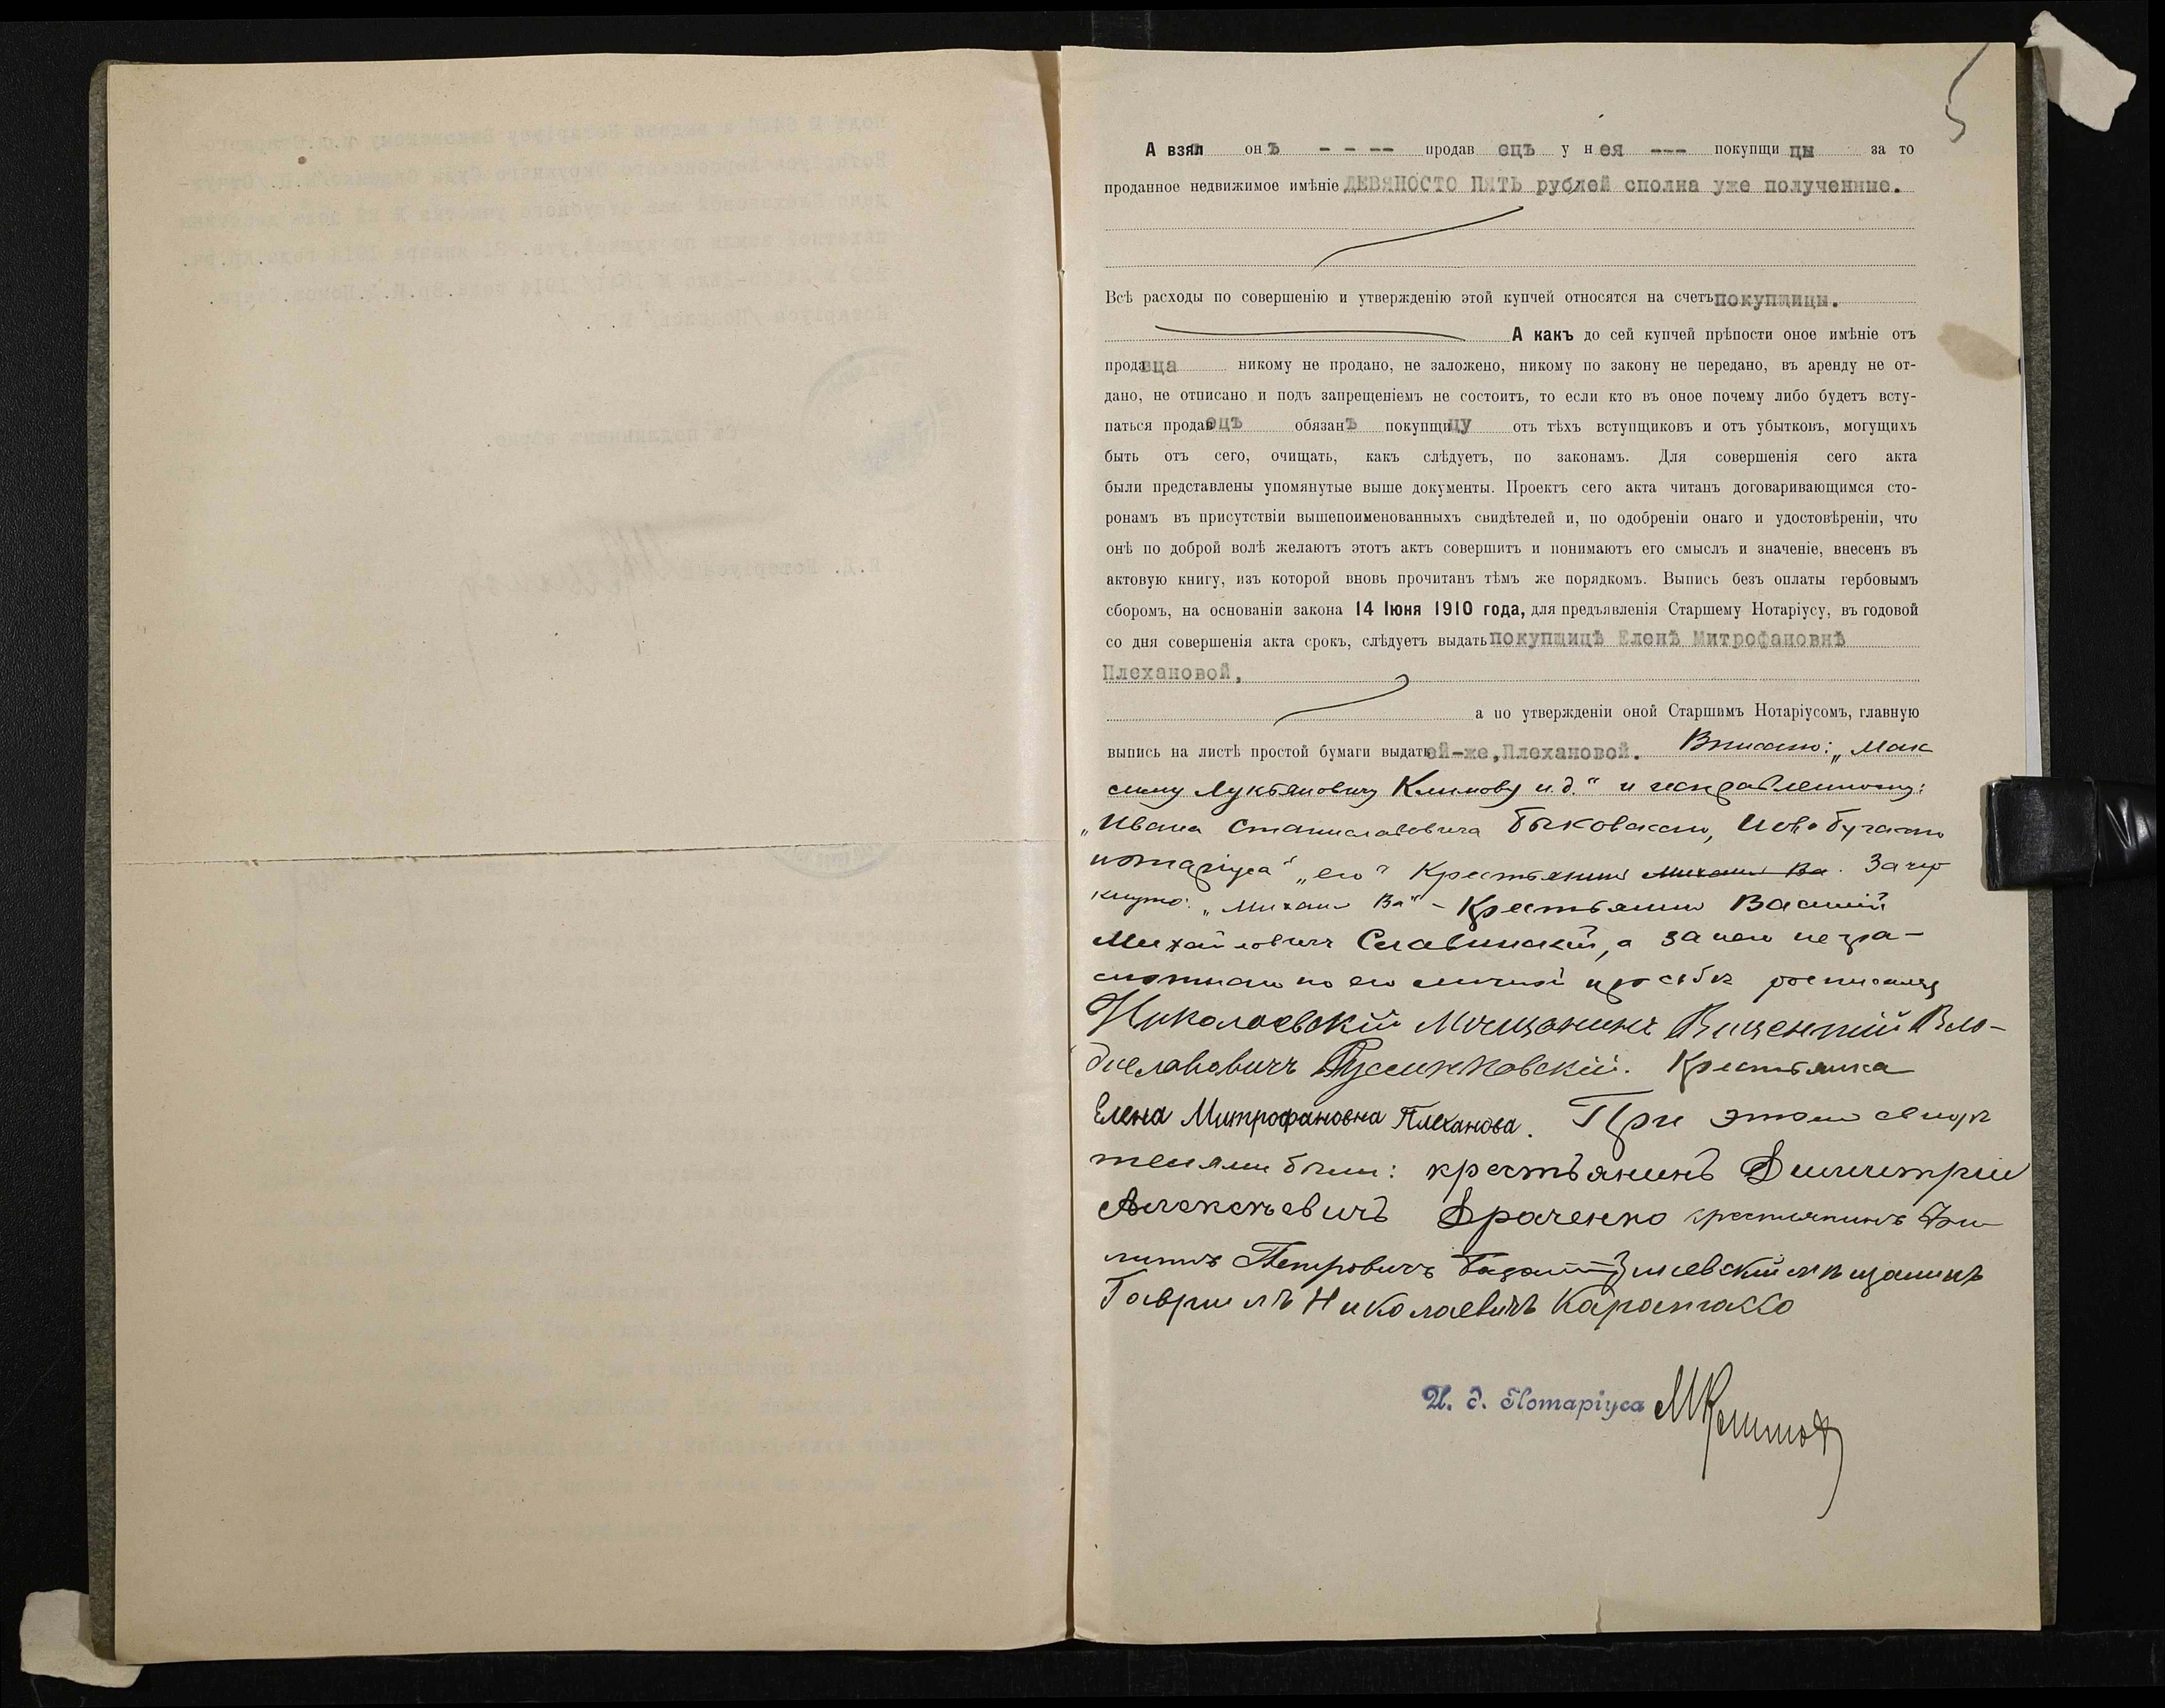 5
А взял онъ - - -- продавецъ у нея --- покупщицы за то
проданное недвижимое имѣніе ДЕВЯНОСТО ПЯТЬ рублей сполна уже полученные.
Всѣ расходы по совершенію и утвержденію этой купчей относятся на счетъ покупщицы.
А какъ до сей купчей крѣпости оное имѣніе отъ
продавца никому не продано, не заложено, никому по закону не передано, въ аренду не от-
дано, не отписано и подъ запрещеніемъ не состоитъ, то если кто въ оное почему либо будетъ всту-
паться продавецъ обязанъ покупщицу отъ тѣхъ вступщиковъ и отъ убытковъ, могущихъ
быть отъ сего, очищать, какъ слѣдуетъ, по законамъ. Для совершенія сего акта
были представлены упомянутые выше документы. Проектъ сего акта читанъ договаривающимся сто-
ронамъ въ присутствіи вышепоименованныхъ свидѣтелей и, по одобреніи онаго и удостовѣреніи, что
онѣ по доброй волѣ желаютъ этотъ актъ совершить и понимаютъ его смыслъ и значеніе, внесенъ въ
актовую книгу, изъ которой вновь прочитанъ тѣмъ же порядкомъ. Выпись безъ оплаты гербовымъ
сборомъ, на основаніи закона 14 Іюня 1910 года, для предъявленія Старшему Нотаріусу, въ годовой
со дня совершенія акта срокъ, слѣдуетъ выдать покупщицѣ Еленѣ Митрофановнѣ
Плехановой,
а по утвержденіи оной Старшимъ Нотаріусомъ, главную
выпись на листѣ простой бумаги выдать ей-же, Плехановой. Вписано: „Мак
симу Лукьяновичу Климову и.д.“ и исправленному:
„Ивана Станиславовича Быковскаго, Новобугскаго
нотаріуса“ „его“ Крестьянинъ Михаилъ Ва. Зачер
кнуто: „Михаилъ Ва“ - Крестьянинъ Василій
Михайловичъ Славинскій, а за него негра-
мотнаго по его личной просьбѣ росписался
Николаевскій Мѣщанинъ Вицентій Вло-
диславовичъ Крестьянка
Елена Митрофановна Плеханова. При этомъ свидѣ
телями были: крестьянинъ Димитрій
Алексѣевичъ Драченко крестьянинъ Фи
липпъ Петровичъ мѣщанинъ
Гавріилъ Николаевичъ
И. д. Нотаріуса МКлимовъ